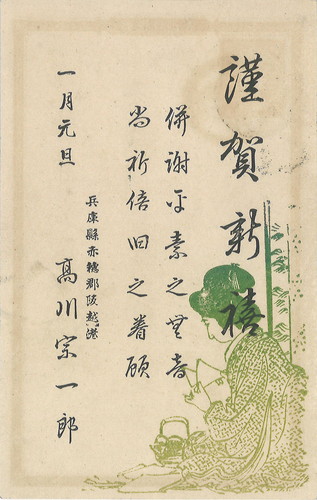 謹賀新禧
併謝平素之無音
尚祈倍旧之眷顧
一月元旦
兵庫縣赤穂郡坂越港
高川宗一郎